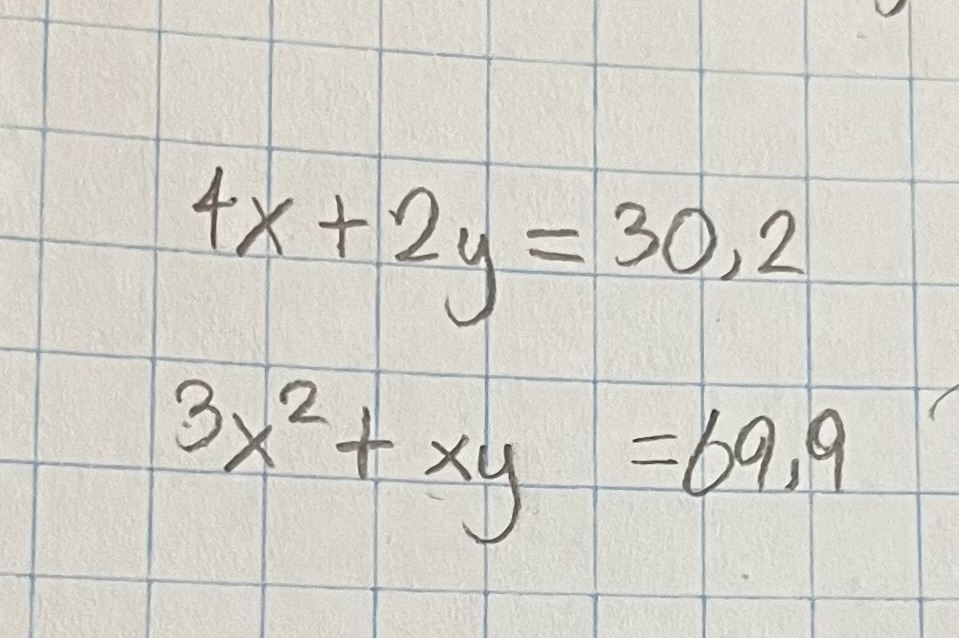 4x + 2y = 30,2
3x² + xy = 69,9